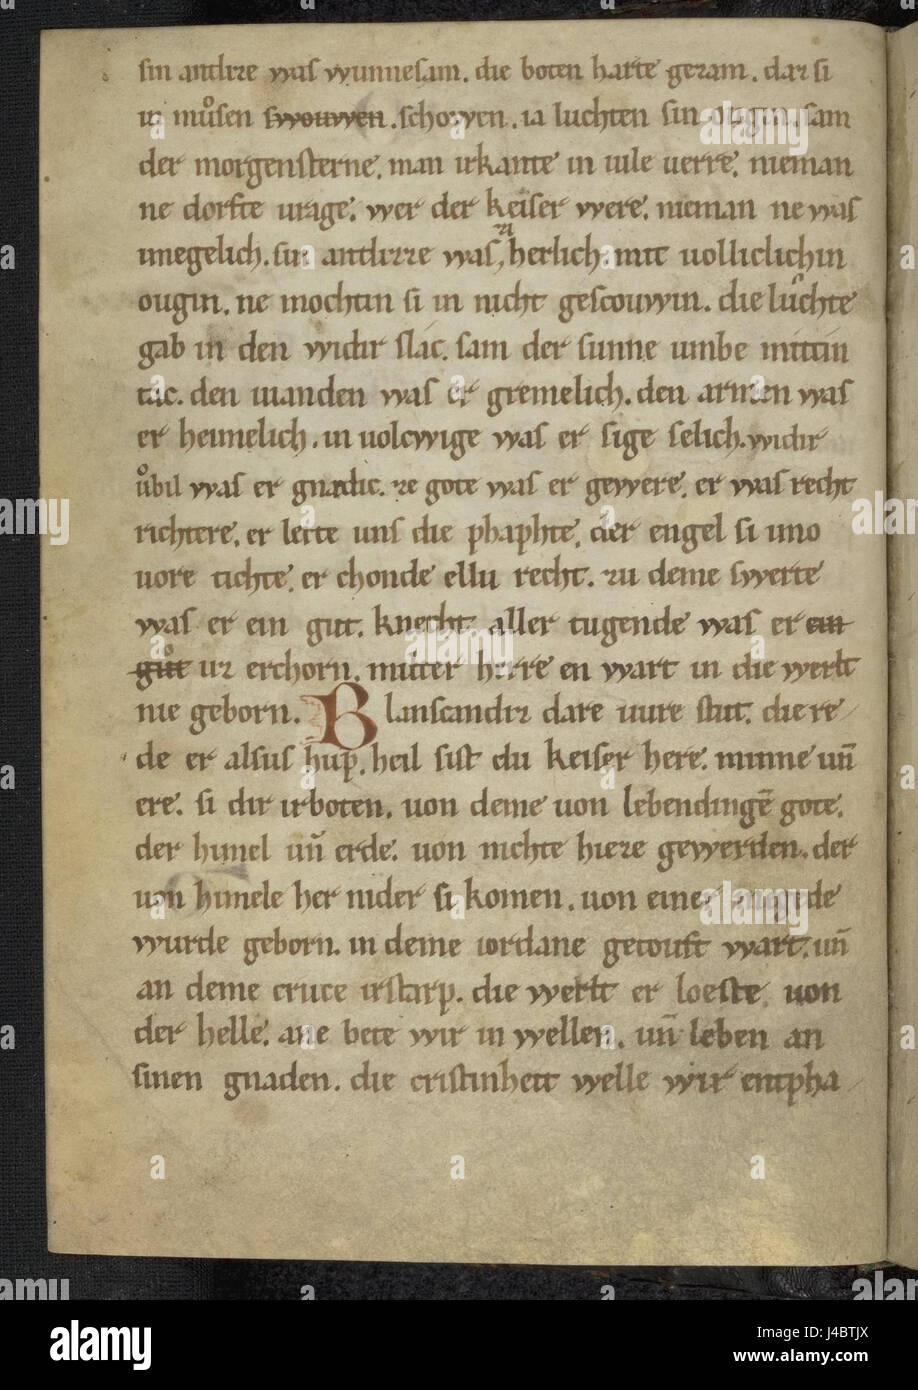 sin antlize was wunnesam. die boten harte gezam. daz si
in můsen swouwen. schowen. ia luchten sin ougin. sam
der morgensterne. man irkante in uile uerre. nieman
ne dorfte urage. wer der keiser were. nieman ne was
imegelich. sin antlizze was zi herlich. mit uolliclichin
ougin. ne mochtin si in nicht gescouwin. die lůchte
gab in den widir slac. sam der sunne umbe mittin
tac. den uianden was er gremelich. den armen was
er heimelich. in uolcwige was er sige selich. widir
ůbil was er gnadic. ze gote was er gewere. er was recht
richtere. er lerte uns die phaphte. der engel si imo
uore tichte. er chonde ellu recht. zu deme swerte
was er ein gut. knecht aller tugende was er ein
gůt uz erchorn. milter herre en wart in die werlt
nie geborn. Blanscandiz dare uure stut. die re
de er alsus hup. heil sist du keiser here. minne uñ
ere. si dir irboten. uon deme uon lebendingē gote.
der himel uñ erde. uon nichte hieze gewerden. der
uon himele her nider si komen. uon einer magede
wurde geborn. in deme iordane getouft wart. uñ
an deme cruce irstarp. die werlt er loeste. uon
der helle. ane bete wir in wellen. uñ leben an
sinen gnaden. die cristinheit welle wir entpha
alamy
Image ID: J4BTJX
www.alamy.com